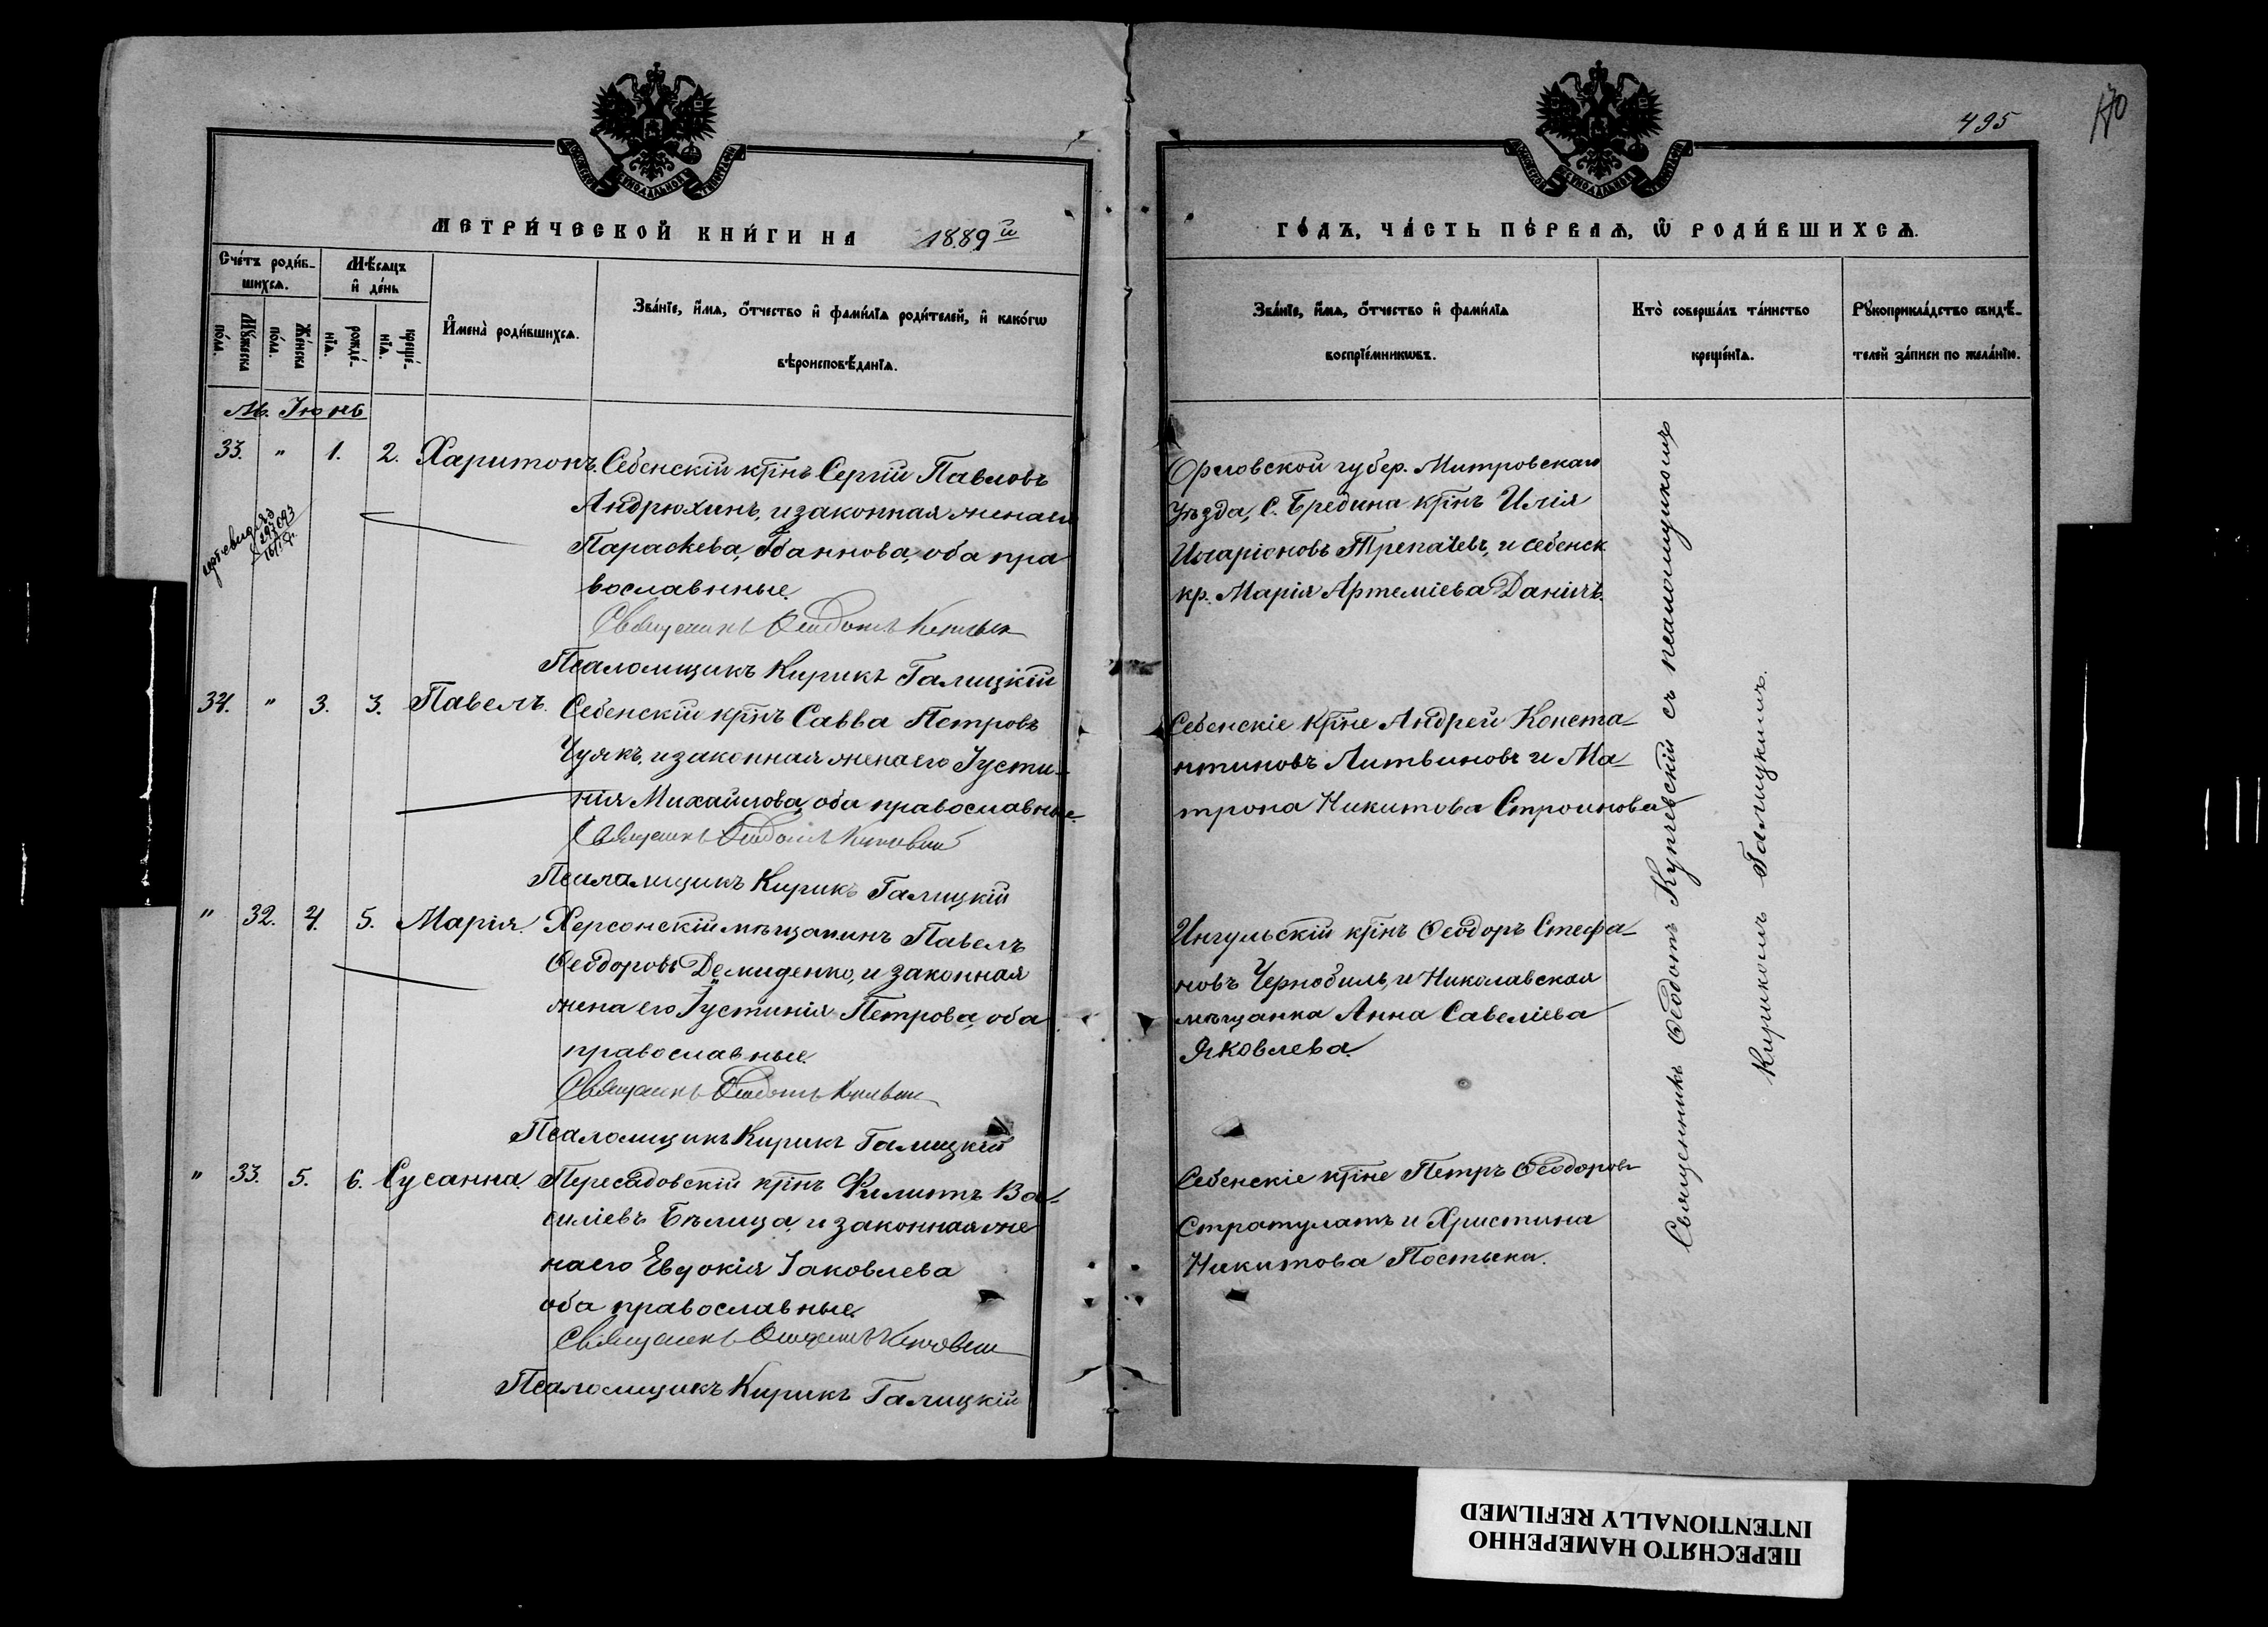 495
170
МЕТРИ́ЧЕСКОЙ КНИ́ГИ НА 1889й
ГО́ДЪ, ЧА́СТЬ ПЕ́РВАЯ, Ѿ РОДИ́ВШИХСЯ.
Сче́тъ роди́в-
шихся.
Мꙋ́жеска
по́ла.
Же́нска
по́ла.
Мѣ́сяцъ
и де́нь
рожде́-
нїя.
креще́-
нїя.
Имена̀ роди́вшихся.
Зва́нїе, и́мя, о́тчество и фами́лїя роди́телей, и како́гѡ
вѣроисповѣ́данїя.
Зва́нїе, и́мя, о́тчество и фами́лїя
воспрїе́мникѡвъ.
Кто̀ соверша́лъ та́инство
креще́нїя.
Рꙋкоприкла́дство свидѣ́-
телей за́писи по жела́нїю.
М. Іюнь
33. " 1. 2. Харитонъ. Себенскій крінъ Сергій Павловъ
Андрюхинъ, и законная жена его
Параскева, Іоаннова, оба пра
вославнные.
Священникъ Ѳеодотъ
Псаломщикъ Кирикъ Галицкій
Орловской губер. Митровскаго
уѣзда, С. Бредина крінъ Илія
Иларіоновъ Трепачевъ, и себенск.
кр. Марія Артеміева Данилъ.
34. " 3. 3. Павелъ. Себенскій крінъ Савва Петровъ
Чуякъ, и законная жена его Іусти-
нія Михайлова, оба православные.
Священникъ Ѳеодотъ
Псаломщикъ Кирикъ Галицкій
Себенскіе кріне Андрей Конста-
нтиновъ Литвиновъ и Ма-
трона Никитова Строинова
" 32. 4. 5. Марія. Херсонскій мѣщанинъ Павелъ
Ѳеодоровъ Демиденко, и законная
жена его Іустинія Петрова, оба
православные.
Священникъ Ѳеодотъ
Псаломщикъ Кирикъ Галицкій
Ингульскій крінъ Ѳеодоръ Стефа-
новъ Чернобиль, и Николавская
мѣщанка Анна Савеліева
Яковлева.
" 33. 5. 6. Сусанна. Пересадовскій крінъ Филиппъ Ва-
силіевъ Бѣлица, и законная же
на его Евдокія Іаковлева
оба православные.
Священникъ Ѳеодотъ
Псаломщикъ Кирикъ Галицкій
Себенскіе кріне Петръ Ѳеодоровъ
Стратулатъ и Христина
Никитова Постыка.
Священникъ Ѳеодотъ Купчевскій съ псаломщикомъ
Кирикомъ Галицкимъ.
ПЕРЕСНЯТО НАМЕРЕННО
INTENTIONALLY REFILMED